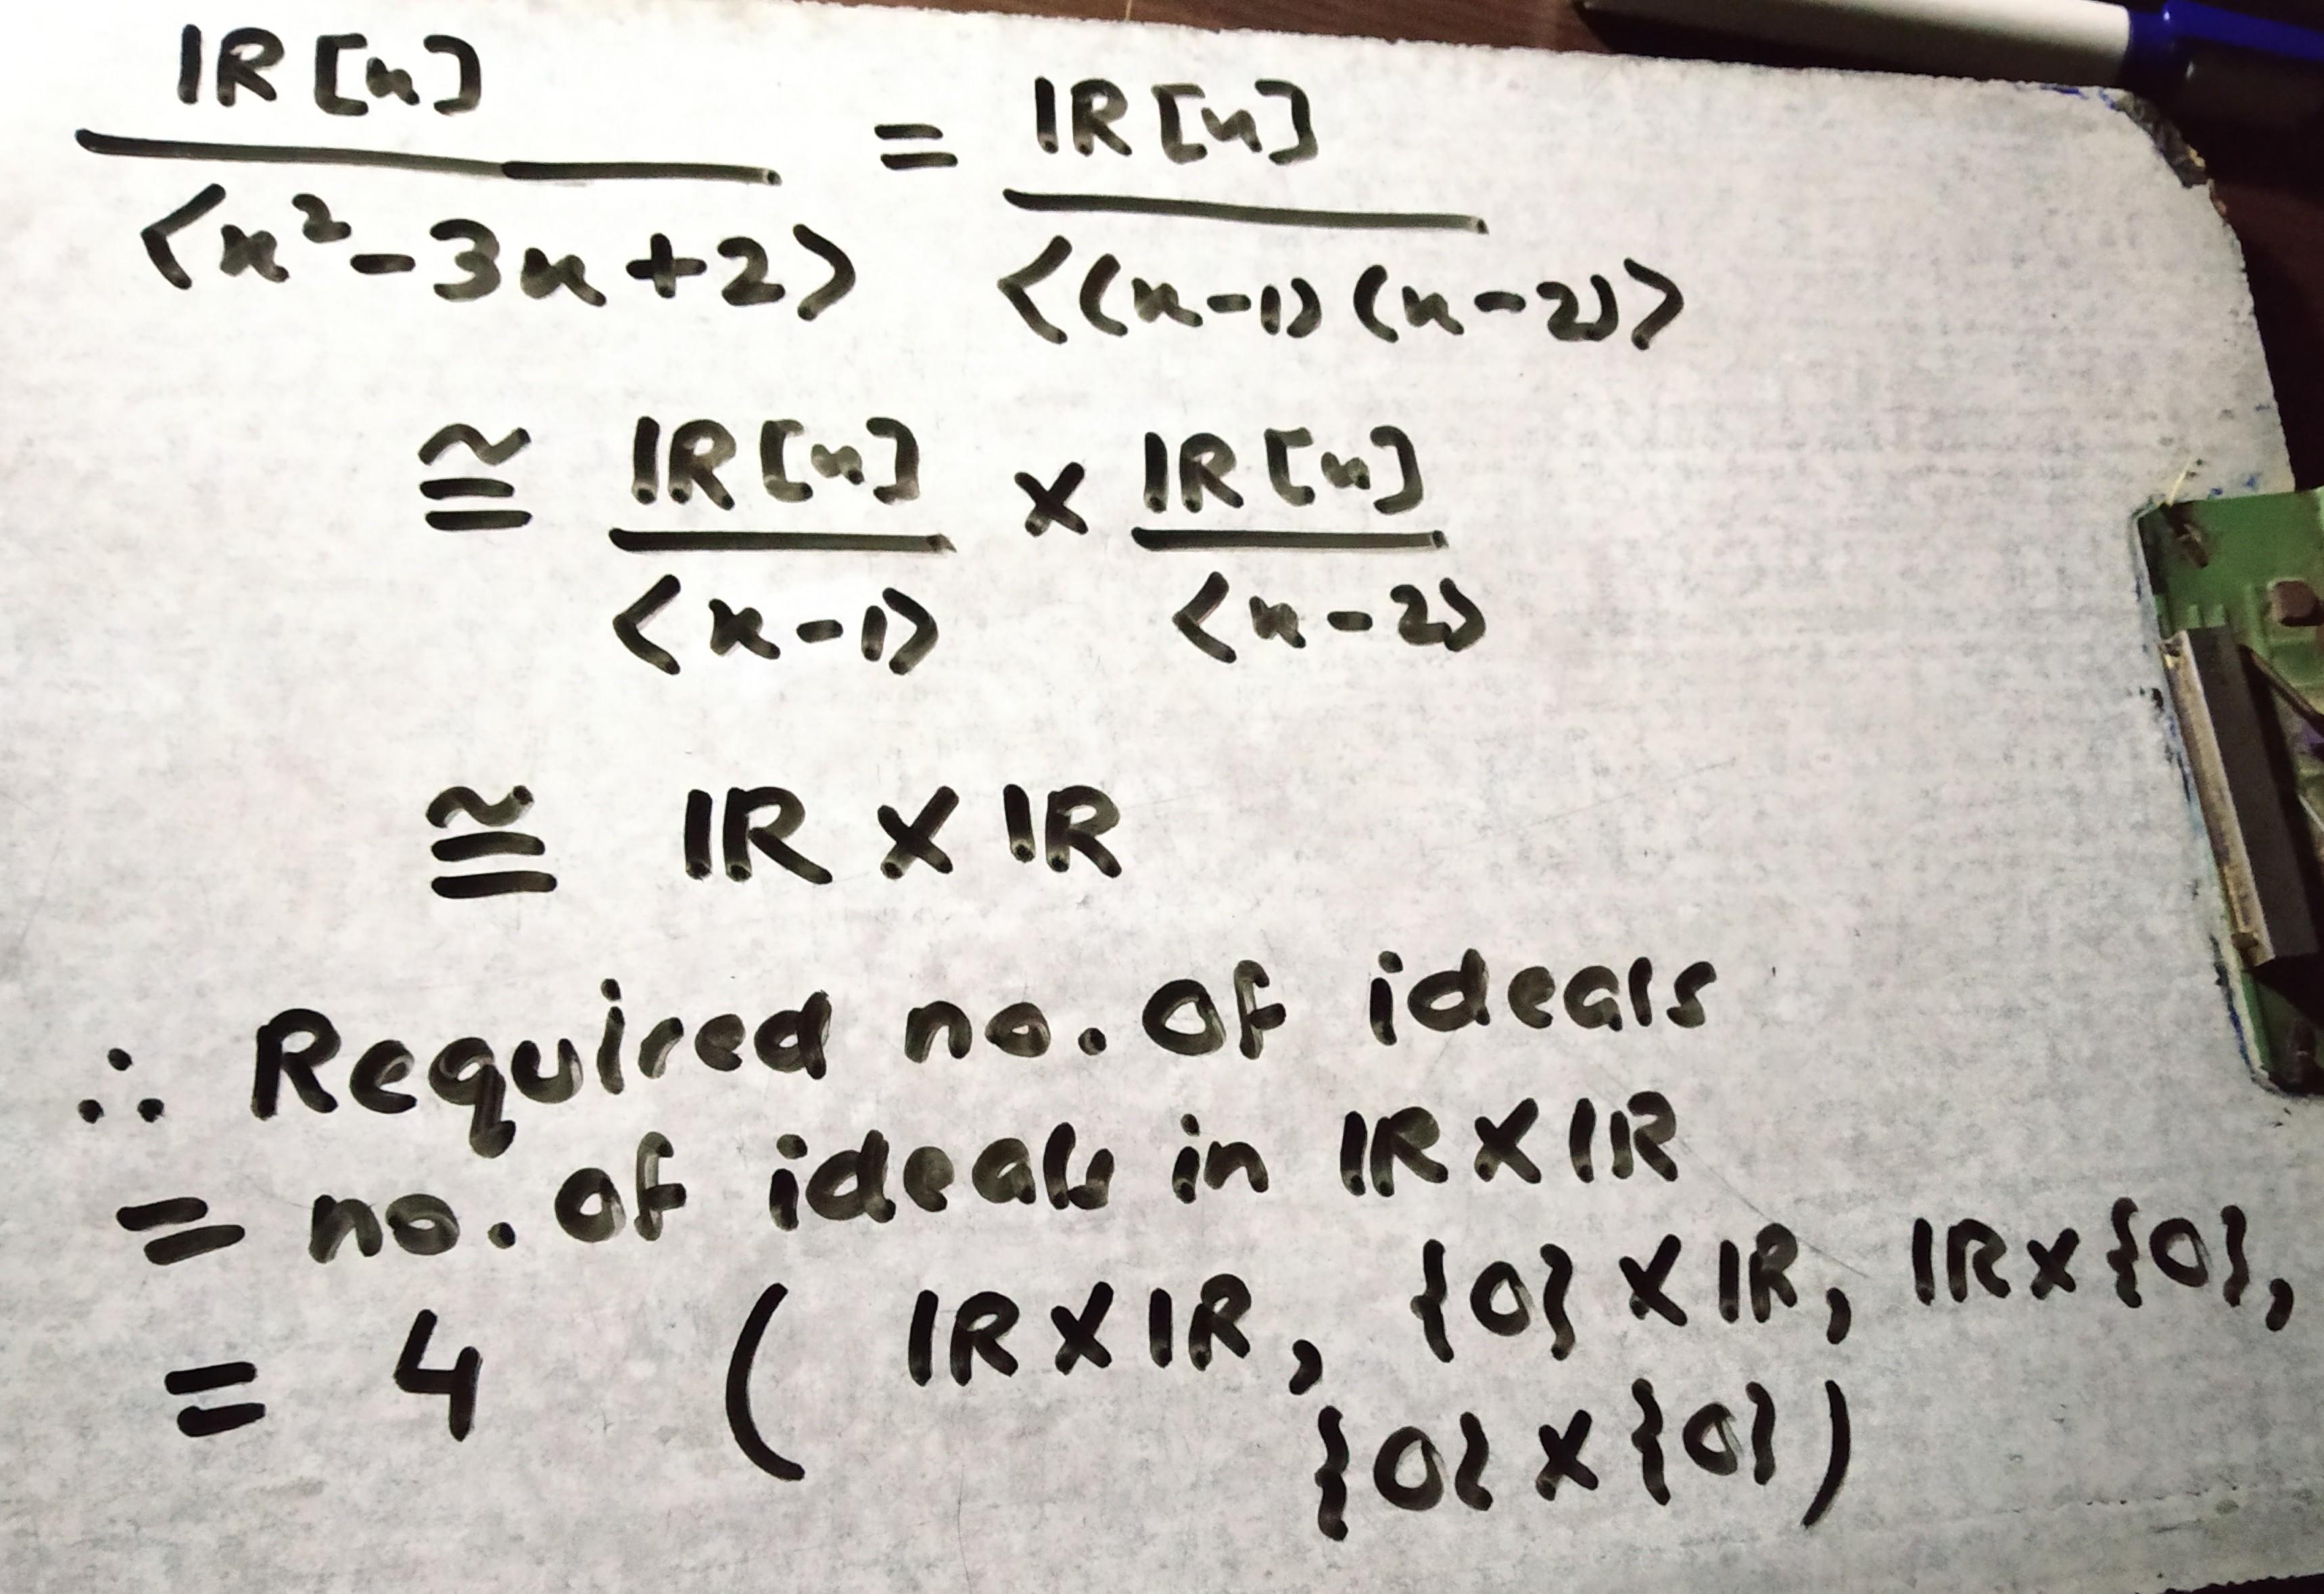 IR[x] / <x²-3x+2> = IR[x] / <(x-1)(x-2)>
≅ IR[x] / <x-1> × IR[x] / <x-2>
≅ IR × IR
∴ Required no. of ideals
= no. of ideals in IR × IR
= 4 ( IR × IR, {0} × IR, IR × {0},
{0} × {0} )